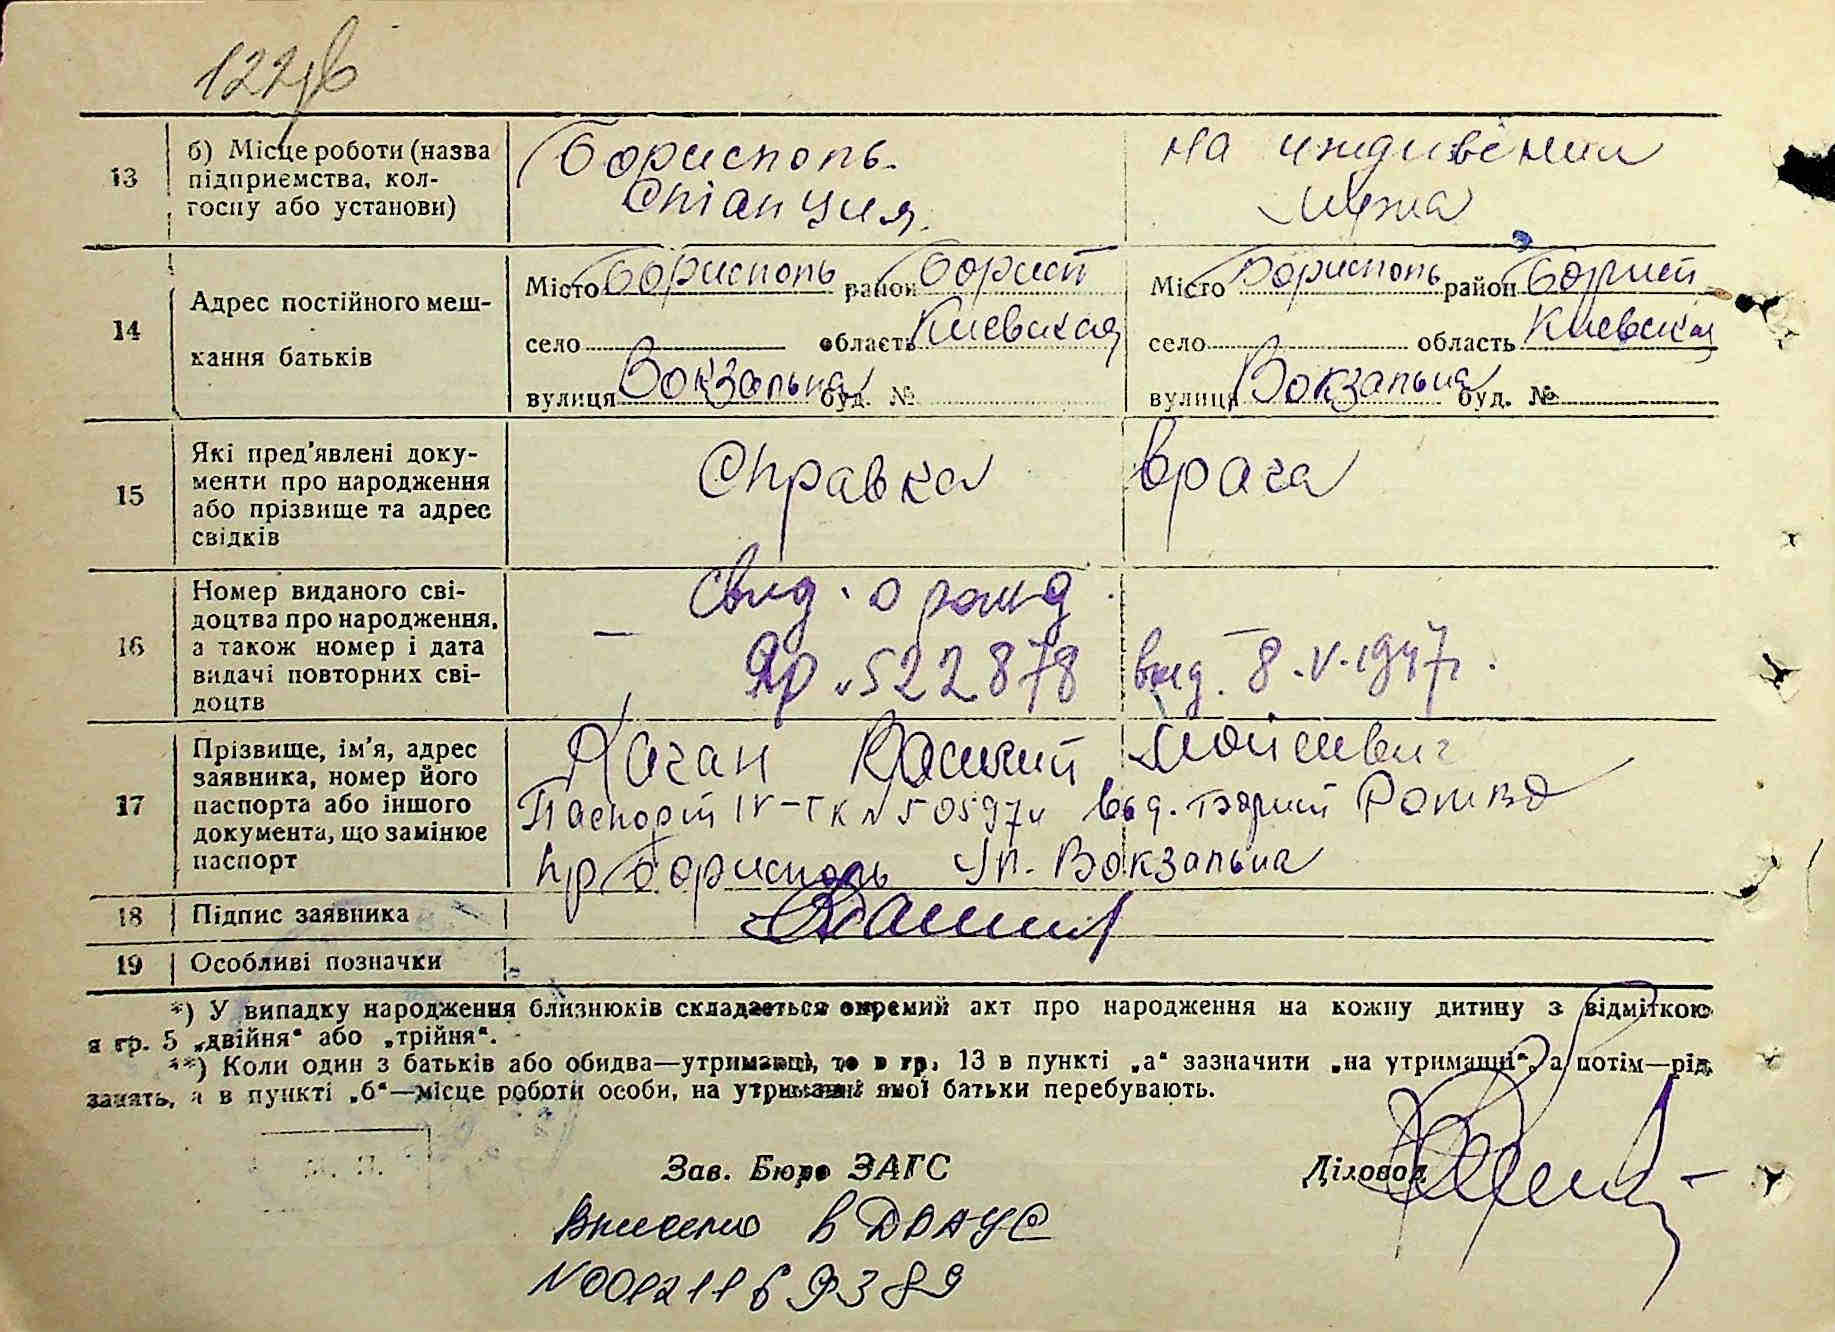 13
б) Місце роботи (назва
підприємства, кол-
госпу або установи)
Бориспопь.
Станция.
на иждивении
мужа
14
Адрес постійного меш-
кання батьків
Місто Бориспопь район Борисп
село область Киевская
вулиця Вокзальна буд. №
Місто Бориспопь район Борисп
село область Киевская
вулиця Вокзальна буд. №
15
Які пред'явлені доку-
менти про народження
або прізвище та адрес
свідків
Справка врача
16
Номер виданого сві-
доцтва про народження,
а також номер і дата
видачі повторних сві-
доцтв
Свид. о рожд.
522878 выд. 8.V.1947г.
17
Прізвище, ім'я, адрес
заявника, номер його
паспорта або іншого
документа, що замінює
паспорт
Мойсеевич
Паспорт IV-ТК выд. Борисп
пр Бориспопь ул. Вокзальна
18
Підпис заявника
19
Особливі позначки
*) У випадку народження близнюків складається окремий акт про народження на кожну дитину з відміткою
в гр. 5 „двійня“ або „трійня“.
**) Коли один з батьків або обидва—утриманці, то в гр. 13 в пункті „а“ зазначити „на утриманні“, а потім—рід
занять, а в пункті „б“—місце роботи особи, на утриманні якої батьки перебувають.
М. П.
Зав. Бюро ЗАГС
Діловод
Внесено в ДРАЦС
N00121169389